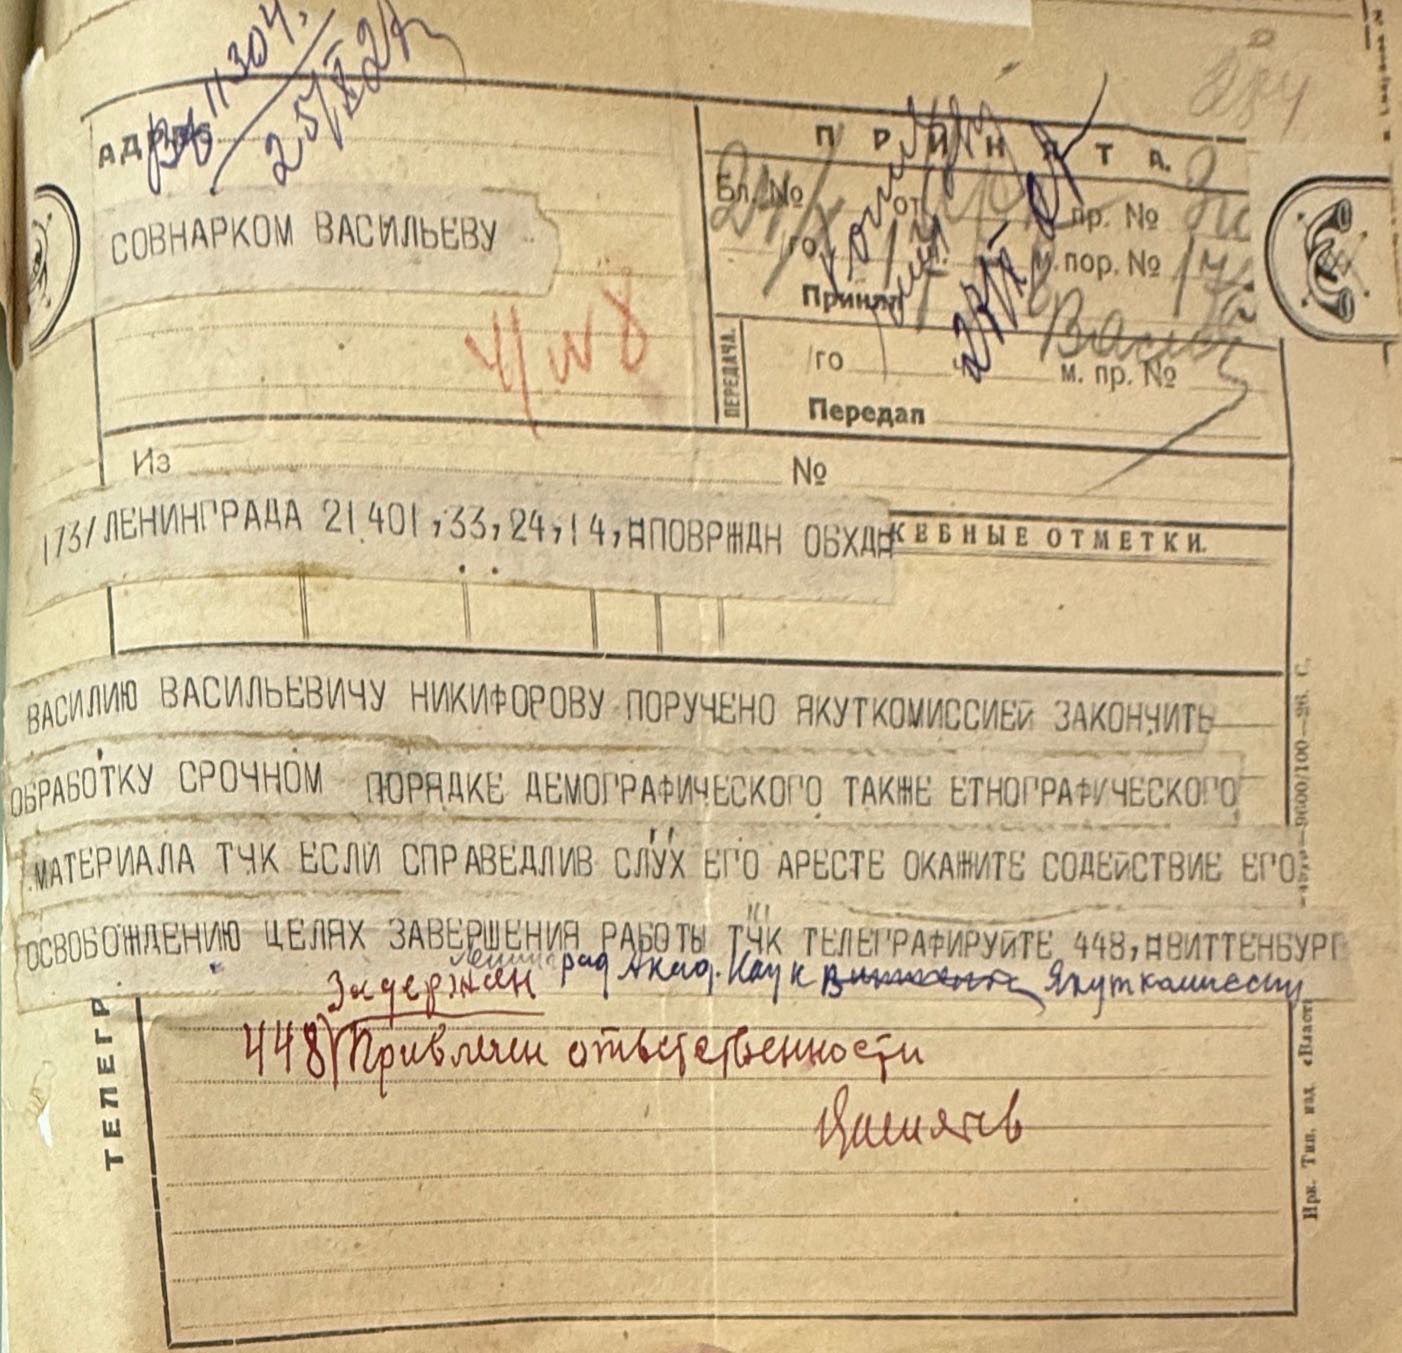 11304.
25/X 27
АДРЕС
ПРИНЯТА.
СОВНАРКОМ ВАСИЛЬЕВУ
Бл. № от пр. №
го м. пор. № 17
Принял
4/N 8
ПЕРЕДАЧА.
го ч. м. пр. №
Передал
Из №
173/ ЛЕНИНГРАДА 21 401,33,24,14,¤ПОВРЖДН ОБХД¤
ЖЕБНЫЕ ОТМЕТКИ.
ВАСИЛИЮ ВАСИЛЬЕВИЧУ НИКИФОРОВУ ПОРУЧЕНО ЯКУТКОМИССИЕЙ ЗАКОНЧИТЬ
ОБРАБОТКУ СРОЧНОМ ПОРЯДКЕ ДЕМОГРАФИЧЕСКОГО ТАКЖЕ ЕТНОГРАФИЧЕСКОГО
МАТЕРИАЛА ТЧК ЕСЛИ СПРАВЕДЛИВ СЛУХ ЕГО АРЕСТЕ ОКАЖИТЕ СОДЕЙСТВИЕ ЕГО
ОСВОБОЖДЕНИЮ ЦЕЛЯХ ЗАВЕРШЕНИЯ РАБОТЫ ТЧК ТЕЛЕГРАФИРУЙТЕ 448,¤ВИТТЕНБУРГ
Ленинград Акад. Наук Якуткомиссии
Задержан
448) Привлечен ответственности
ТЕЛЕГР
Ирк. Тип. изд. «Власть